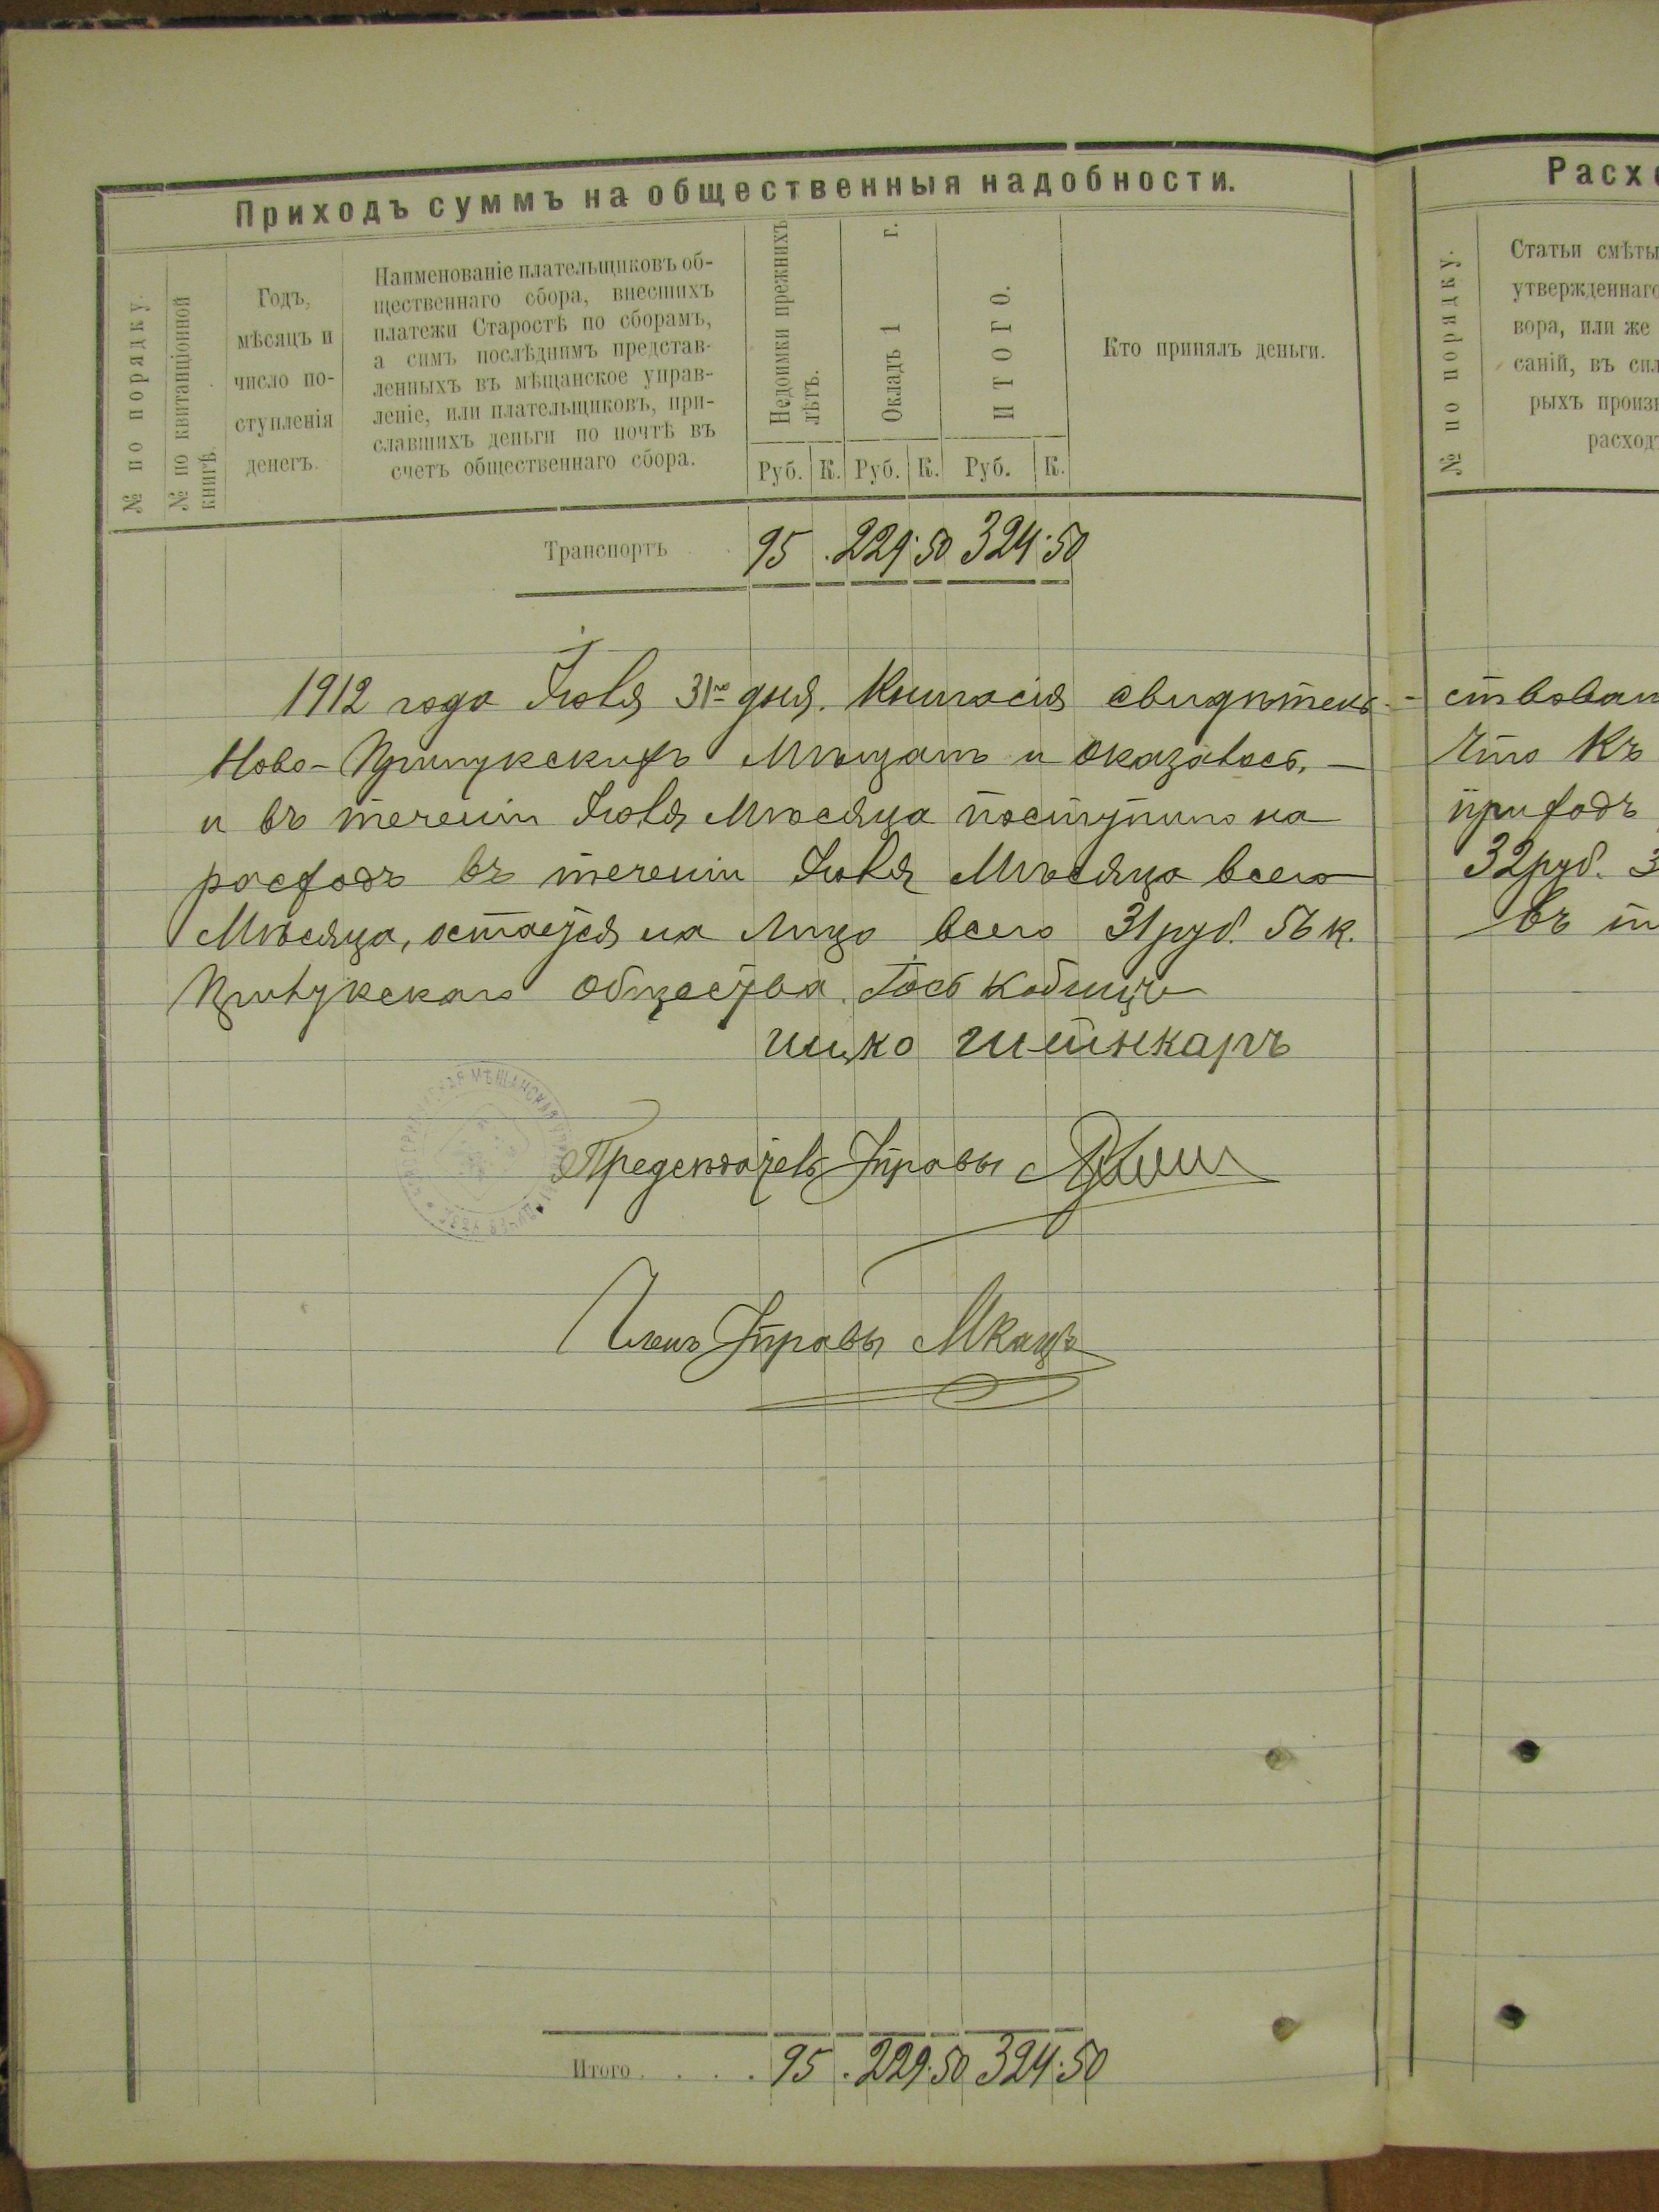 Приходъ суммъ на общественныя надобности.
№ по порядку.
№ по квитанціонной книгѣ.
Годъ,
мѣсяцъ и
число по-
ступленія
денегъ.
Наименованіе плательщиковъ об-
щественнаго сбора, внесшихъ
платежи Старостѣ по сборамъ,
а симъ послѣднимъ представ-
ленныхъ въ мѣщанское управ-
леніе, или плательщиковъ, при-
славшихъ деньги по почтѣ въ
счетъ общественнаго сбора.
Недоимки прежнихъ лѣтъ.
Окладъ 1 г.
ИТОГО.
Руб. К. Руб. К. Руб. К.
Кто принялъ деньги.
Транспортъ 95 . 229 . 50 324 . 50
1912 года Іюля 31го дня. Книга сія свидѣтель-
Ново-Прилукскихъ Мѣщанъ и оказалось, —
и въ теченіи Іюля Мѣсяца поступило на
расходъ въ теченіи Іюля Мѣсяца всего
Мѣсяца, остается на лицо всего 31 руб. 56 к.
Прилукскаго Общества.
Предсѣдатель Управы
Членъ Управы МКацъ
Итого . . . . 95 . 229 . 50 324 . 50
Расхо
№ по порядку.
Статьи смѣты
утвержденнаго
вора, или же
саній, въ сил
рыхъ произв
расход
ствован
Что Къ
приходъ
32 руб. 3
въ т